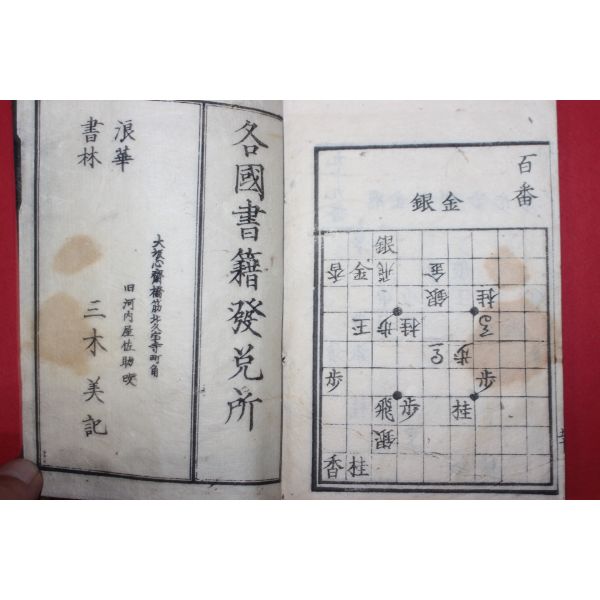 百番
銀金
銀
香金飛金桂
銀
王桂歩
歩
歩歩
飛歩桂
銀
香桂
各國書籍發兌所
大坂心齋橋筋北久宝寺町角
旧河内屋佐助改
三木美記
浪華
書林